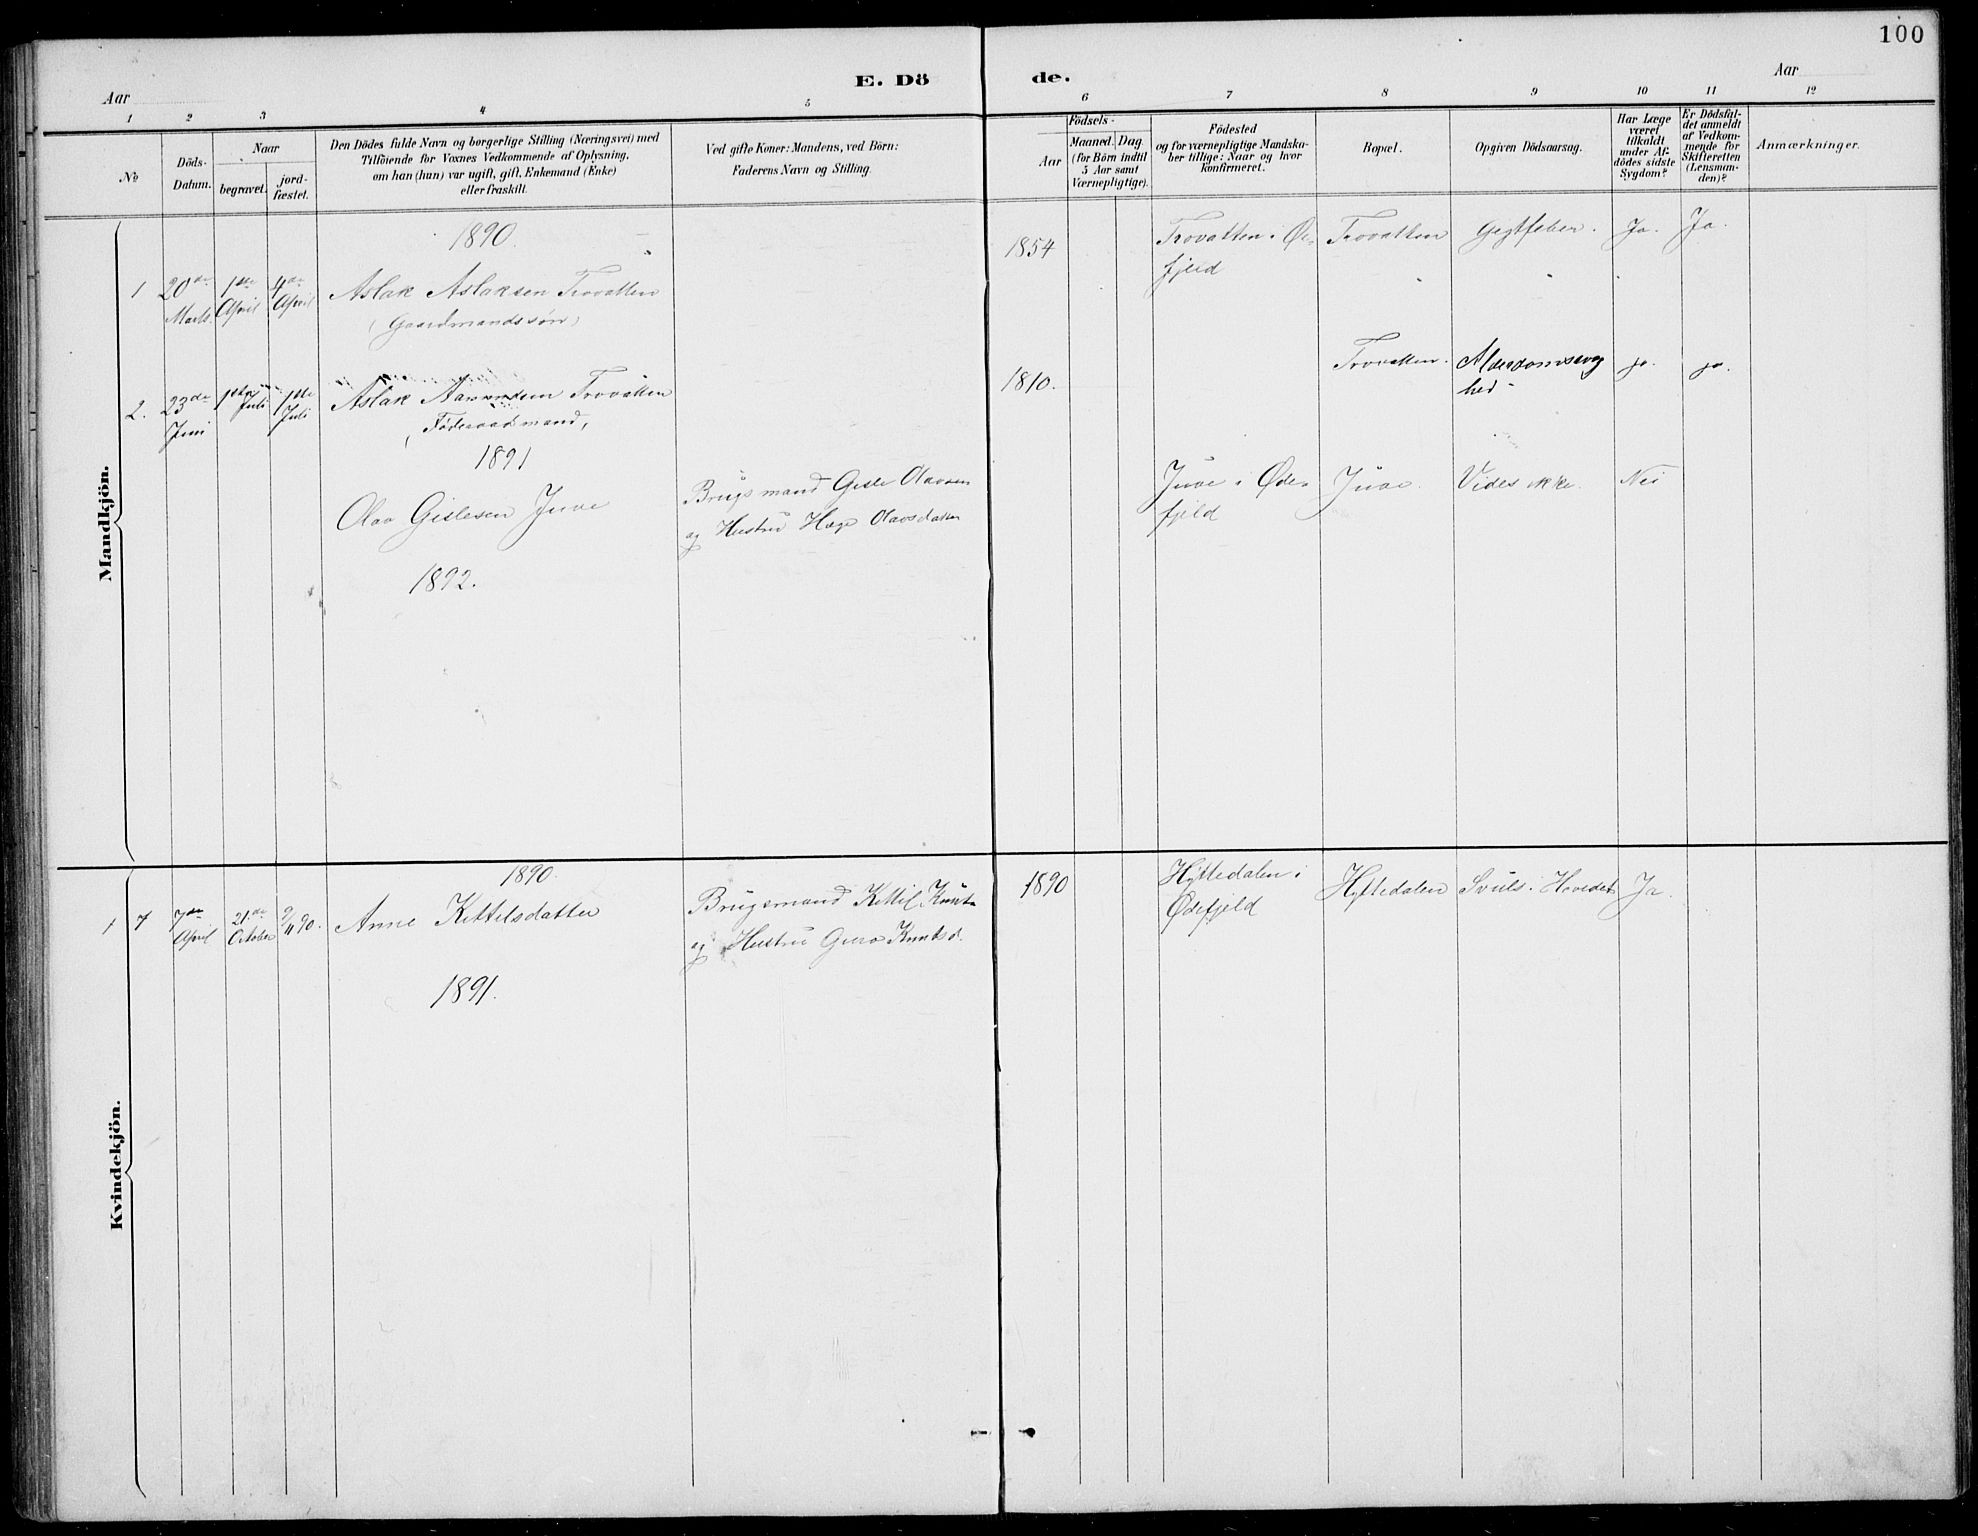 100
E. Dö de.
Aar
Aar
1 2 3 4 5 6 7 8 9 10 11 12
No
Döds-
Datum.
Naar
begravet.
jord-
fæstet.
Den Dödes fulde Navn og borgerlige Stilling (Næringsvei) med
Tilföiende for Voxnes Vedkommende af Oplysning,
om han (hun) var ugift, gift, Enkemand (Enke)
eller fraskilt.
Ved gifte Koner: Mandens, ved Börn:
Faderens Navn og Stilling.
Födsels-
Aar
Maaned. Dag
(for Börn indtil
5 Aar samt
Værnepligtige).
Födested
og for værnepligtige Mandska-
ber tillige: Naar og hvor
konfirmeret.
Bopæl.
Opgiven Dödsaarsag.
Har Læge
været
tilkaldt
under Af-
dödes sidste
Sygdom?
Er Dödsfal-
det anmeldt
af Vedkom-
mende for
Skifteretten
(Lensman-
den)?
Anmærkninger.
Mandkjön.
1890.
1 20de Marts. 1ste April 4de April
Aslak Aslaksen Trovatten
(Gaardmandssøn)
1854 Trovatten i Øde-
fjeld
Trovatten Gigtfeber. Ja. Ja.
2. 23de Juni 1ste Juli 1ste Juli
Aslak Aamundsen Trovatten
(Føderaadsmand)
1810. Trovatten. Alderdomssvag
hed ja. ja.
1891
Olav Gislesen Juve
Brugsmand Gisle Olavsen
og Hustru Hæge Olavsdatter
Juve i Øde-
fjeld
Juve. Vides ikke. Nei
1892.
Kvindekjön.
1890.
1 7 7de April 21de October 9/11 90.
Anne Kittelsdatter
Brugsmand Kittil Knuts.
og Hustru Guro Knutsd.
1890 Hyttedalen i
Ødefjeld
Hyttedalen Svuls i Hovedet Ja.
1891.